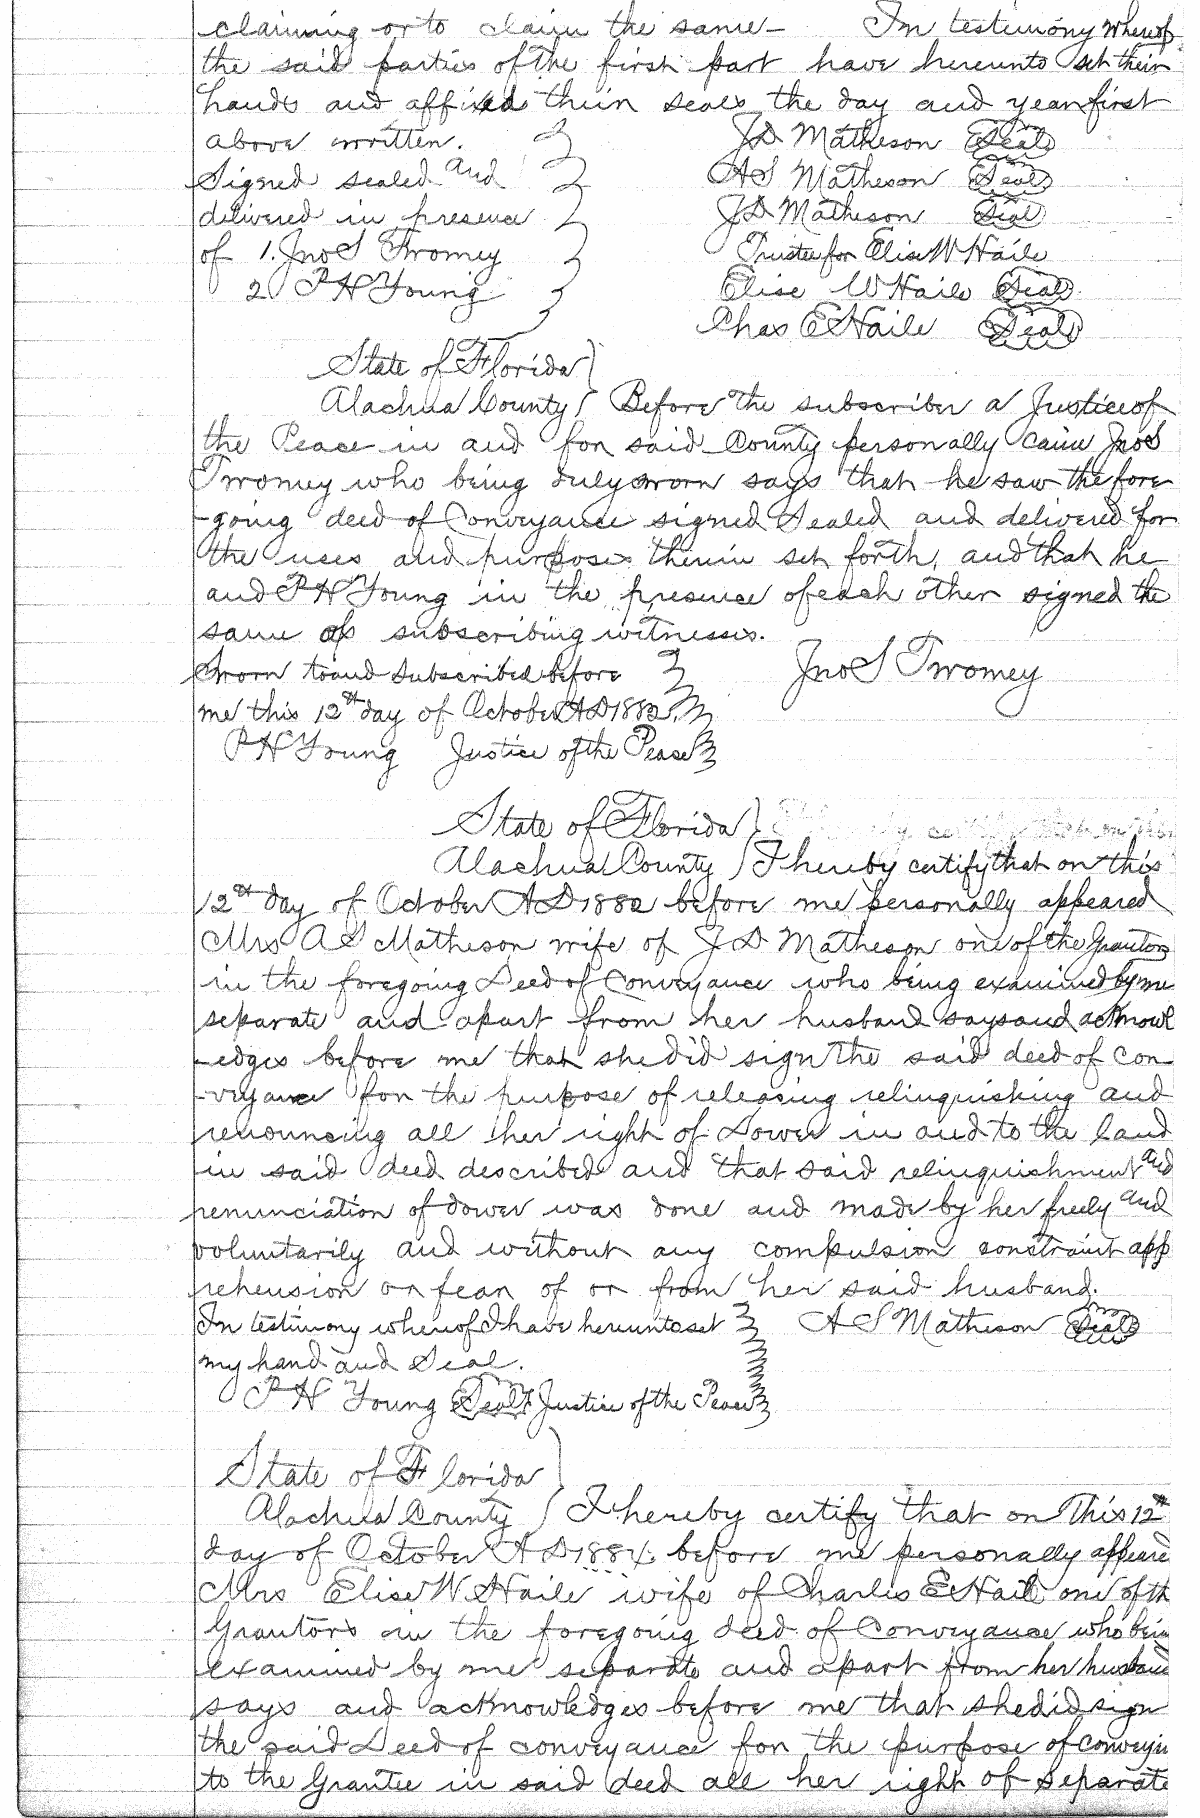 claiming or to claim the same - In testimony whereof
the said parties of the first part have hereunto set their
hands and affixed their seals the day and year first
above written. J D Matheson Seal
Signed sealed and A S Matheson Seal
delivered in presence J D Matheson Seal
of 1. Jno S Twomey Trustee for Elise W Haile
2 P H Young Elise W Haile Seal
Chas E Haile Seal
State of Florida
Alachua County Before the subscriber a Justice of
the Peace in and for said County personally came Jno S
Twomey who being duly sworn says that he saw the fore
-going deed of Conveyance signed Sealed and delivered for
the uses and purposes therein set forth, and that he
and P H Young in the presence of each other signed the
same as subscribing witnesses.
Sworn to and subscribed before Jno S Twomey
me this 12th day of October A D 1882.
P H Young Justice of the Peace
State of Florida
Alachua County I hereby certify that on this
12th day of October A D 1882 before me personally appeared
Mrs A S Matheson wife of J D Matheson one of the Grantors
in the foregoing Deed of Conveyance who being examined by me
separate and apart from her husband says and acknowl
-edges before me that she did sign the said deed of con
-veyance for the purpose of releasing relinquishing and
renouncing all her right of Dower in and to the land
in said deed described and that said relinquishment and
renunciation of dower was done and made by her freely and
voluntarily and without any compulsion constraint app
rehension or fear of or from her said husband.
In testimony whereof I have hereunto set A S Matheson Seal
my hand and Seal.
P H Young Seal Justice of the Peace
State of Florida
Alachua County I hereby certify that on this 12th
day of October A D 188 before me personally appeare
Mrs Elise W Haile wife of Charles E Haile one of th
Grantors in the foregoing deed of Conveyance who bein
examined by me separate and apart from her husband
says and acknowledges before me that she did sign
the said Deed of conveyance for the purpose of conveyin
to the Grantee in said deed all her right of separate